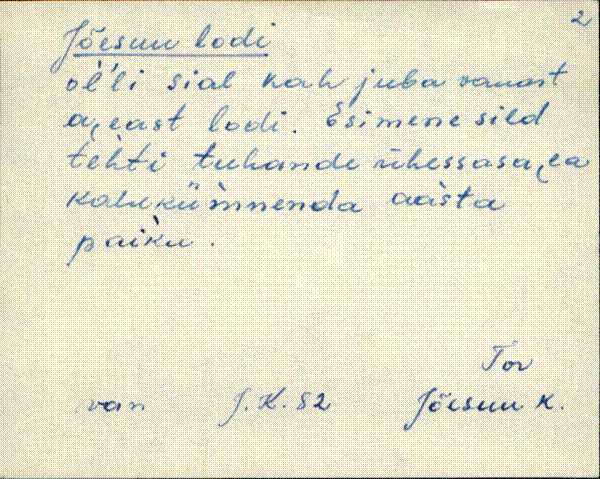 2
Jõesuu lodi
ol̀l'li sial kah juba vanast
a,east lodi. Esimene sild
tèhti tuhande ühessasa,ea
kahekümnenda aàsta
paìku.
Tor
van J.K. 82 Jõesuu k.